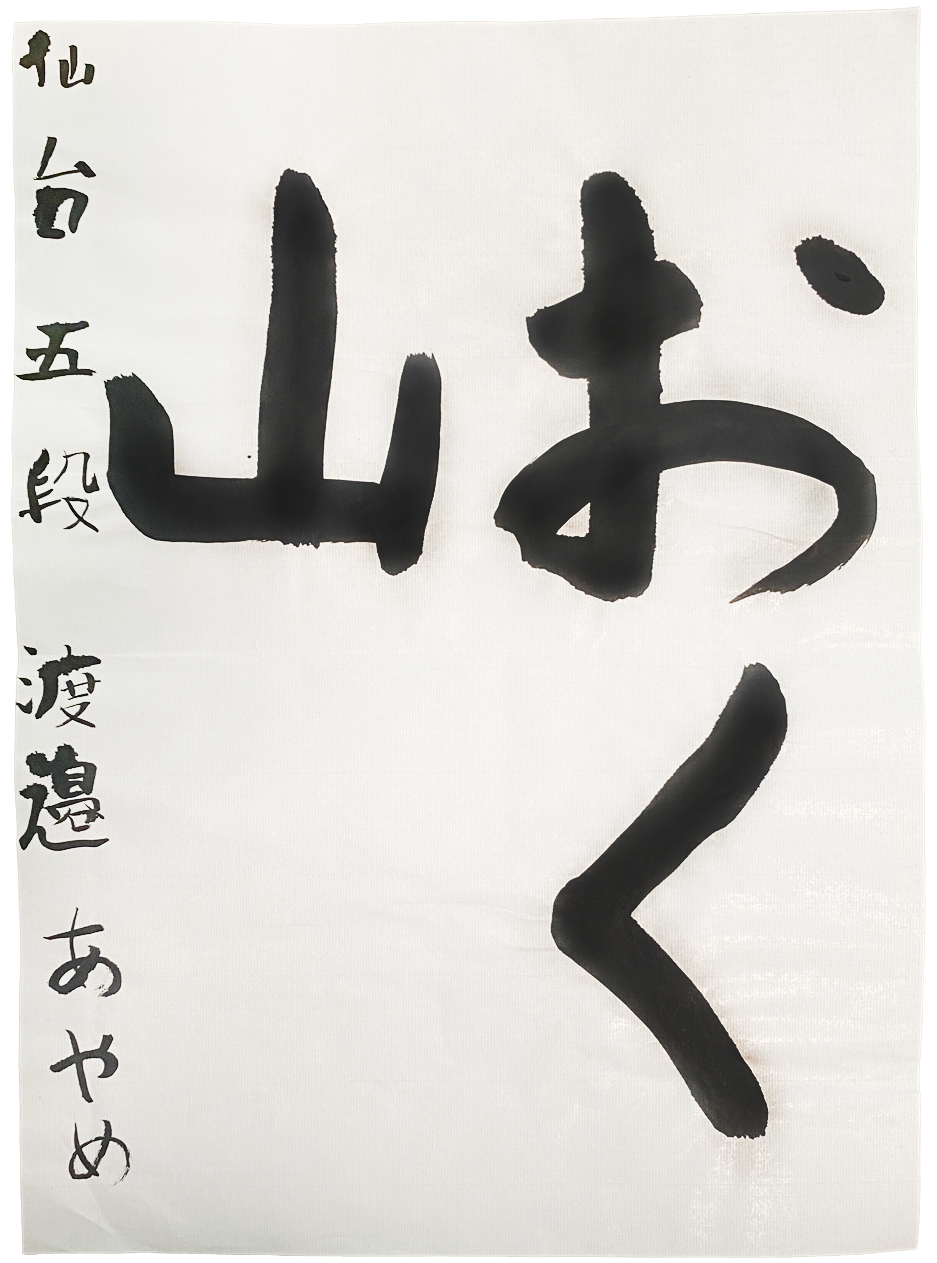 おく
山
仙台 五段 渡邉 あやめ